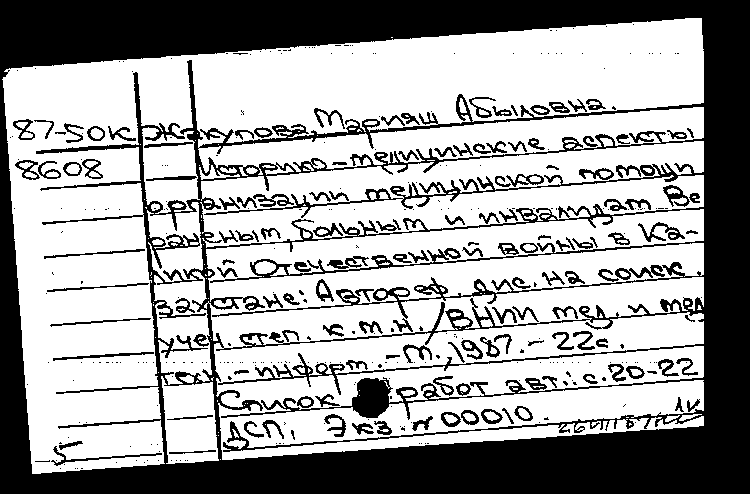 87-50к Жакупова, Марияш Абыловна.
8608 Историко-медицинские аспекты
организации медицинской помощи
раненым, больным и инвалидам Ве
ликой Отечественной войны в Ка-
захстане: Автореф. дис. на соиск.
учен. степ. к.м.н. / ВНИИ мед. и мед
техн.-информ. -М., 1987. - 22с.
Список работ авт.: с.20-22
ДСП. Экз. № 00010.
5